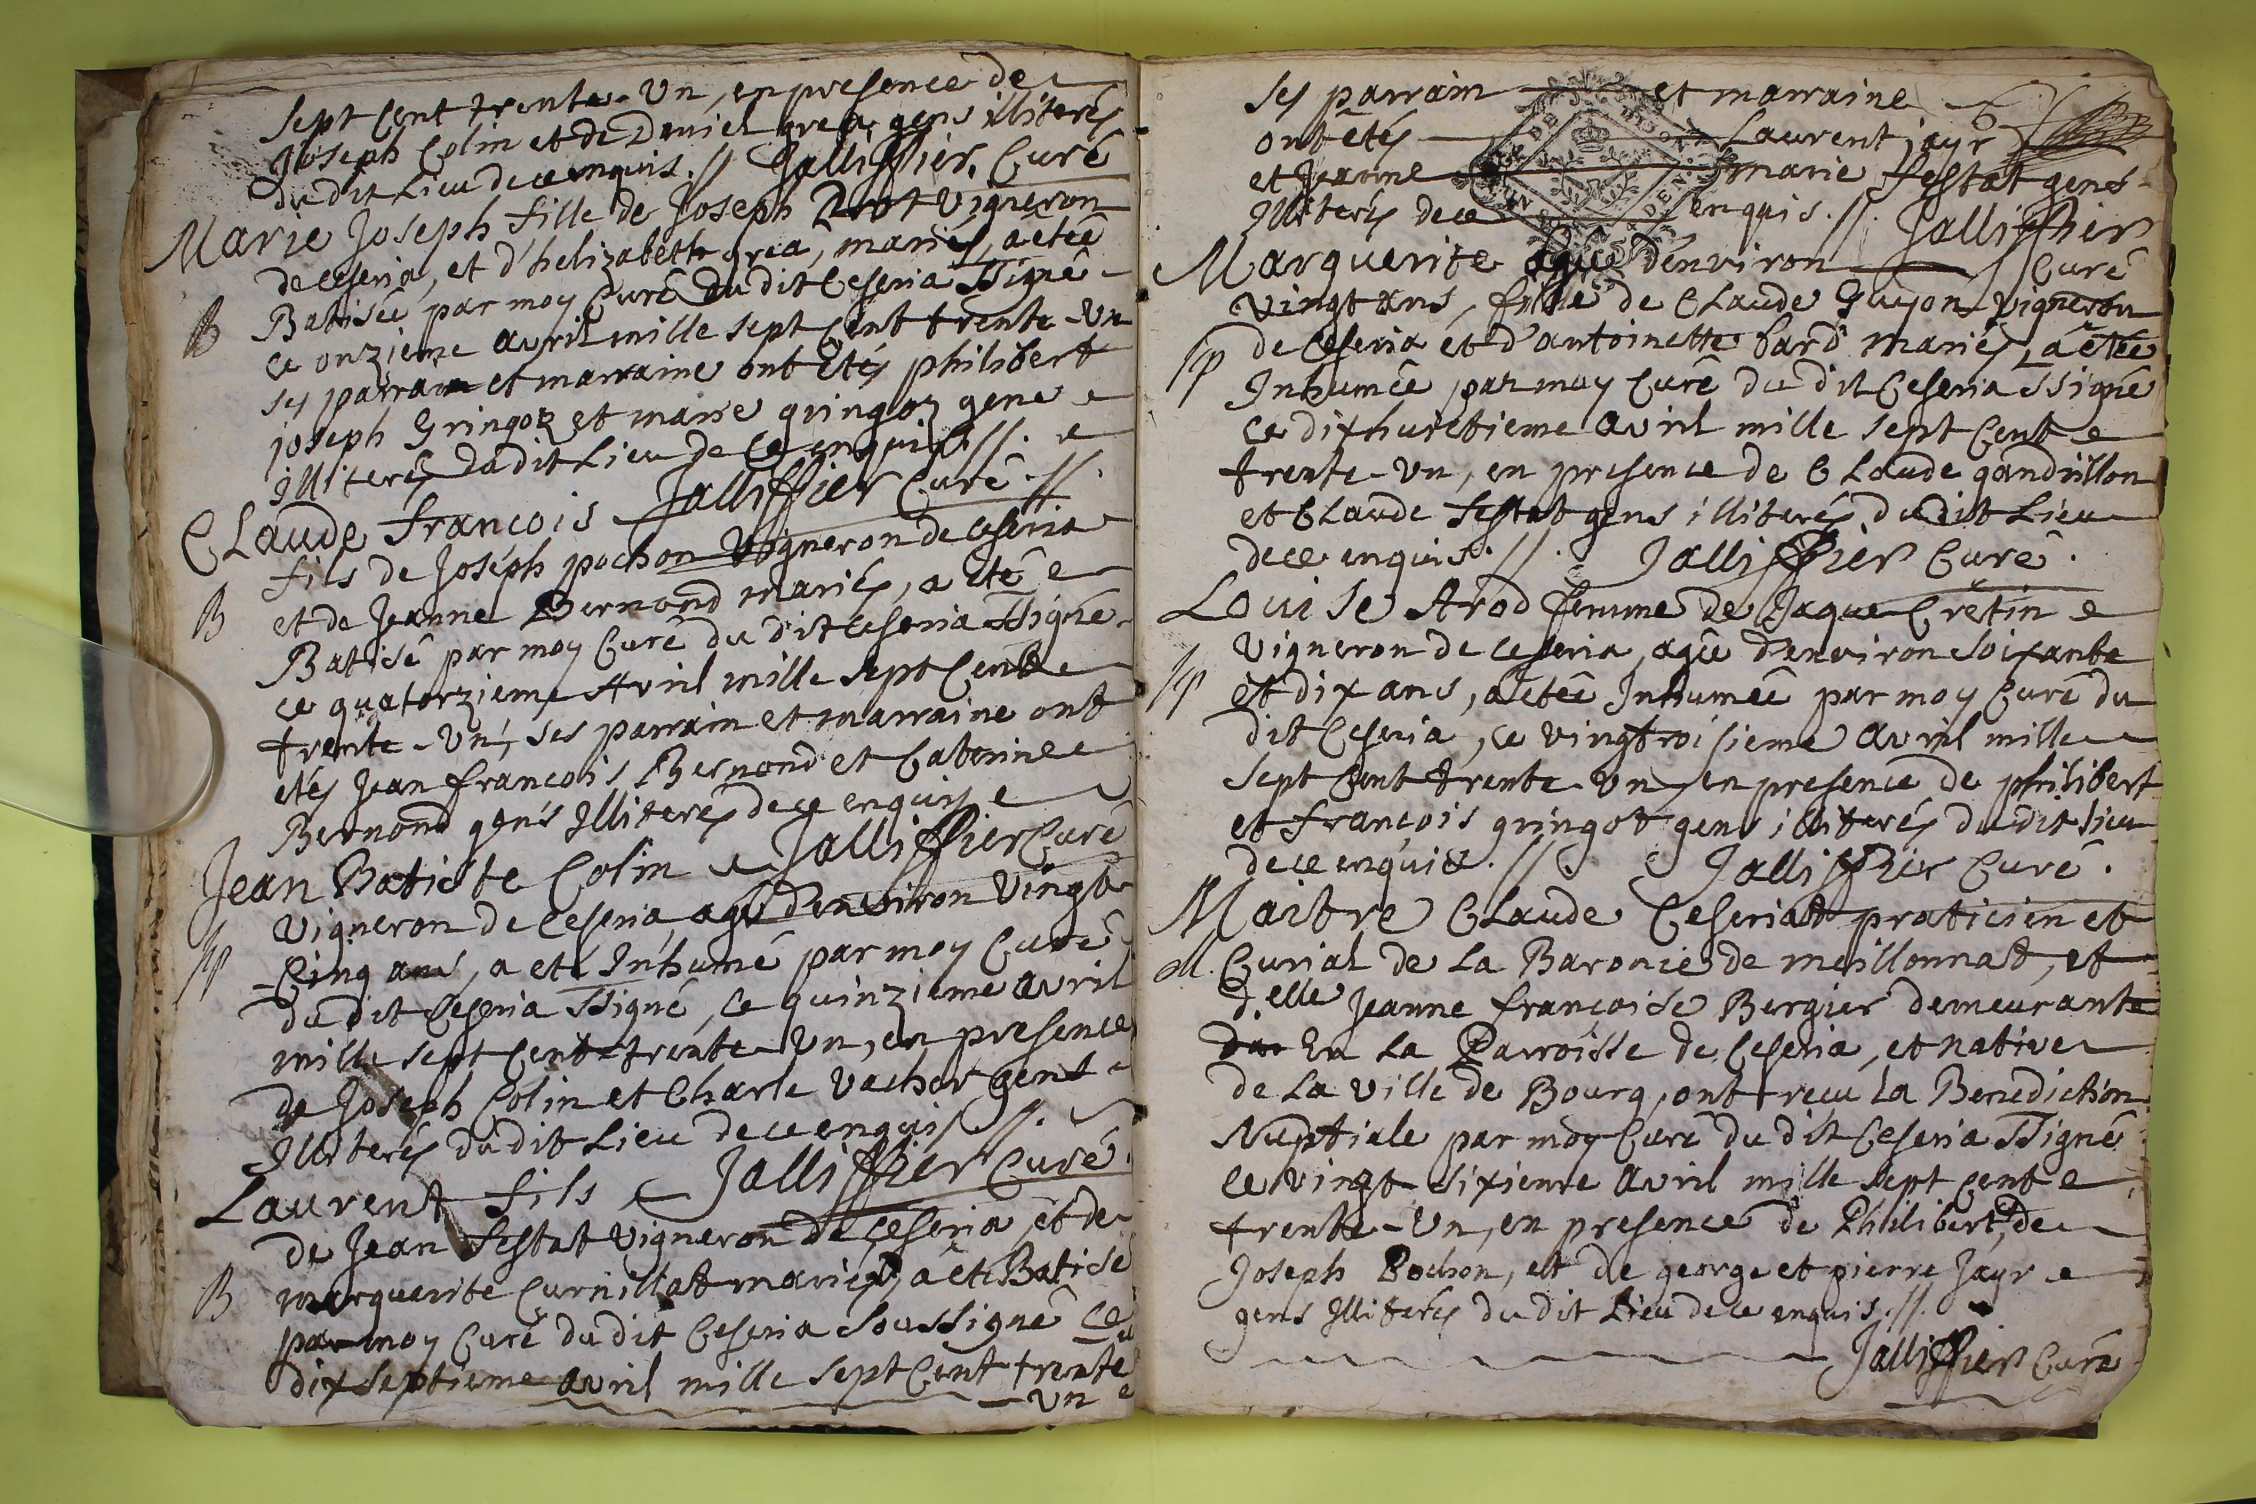 sept Cent trente-Un, en presence de
Joseph Colin et de Daniel grea gens illiterés
du dit Lieu de ce enquis .//. Jalliffier, Curé
Marie Joseph fille de Joseph Vigneron
de Ceseria, et d'helizabeth grea, mariés, a etée
B
Batisée par moy Curé du dit Ceseria ssigné
ce onzieme avril mille sept Cent trente-Un
ses parrain et marraine ont Etés philibert
joseph Gringoz et marie gringoz gens
Illiterés dudit Lieu de Ce enquis .//.
Claude francois Jalliffier Curé .//.
fils de Joseph pochon Vigneron de Ceseria
et de Jeanne Bernond mariés, a eté
B
Batisé par moy Curé du dit Ceseria ssigné
ce quatorzieme Avril mille sept Cent
trente-Un, ses parrain et marraine ont
etés Jean francois Bernond et Caterine
Bernond gens Illiterés de ce enquis
Jean Baticte Colin Jalliffier Curé
Vigneron de Ceseria agé d'environ Vingt
Cinq ans, a eté Inhumé par moy Curé
du dit Ceseria ssigné, ce quinzieme avril
mille sept Cent trente-Un, en presence
de Joseph Colin et Charle Vacher gens
Illiterés du dit Lieu de ce enquis .//.
Laurent fils Jalliffier Curé
de Jean Sestat Vigneron de Ceseria, et de
marguerite Curnillat mariés, a eté Batisé
B
par moy Curé du dit Ceseria soussigné ce
dix septieme avril mille sept Cent trente
Un
ses parrain et marraine
ont étés Laurent jayr
et Jeanne marie Sestat gens
Illiterés de ce enquis .//. Jalliffier
Marguerite agée d'environ Curé
vingt ans, fille de Claude Guyon Vigneron
de Ceseria et d'antoinette bard mariés, a etée
Inhumée par moy Curé du dit Ceseria ssigné
ce dixhuictieme avril mille sept Cent
trente-Un, en presence de Claude gandillon
et Claude Sestat gens illiterés du dit Lieu
de ce enquis .//. Jalliffier Curé.
Louise Arod femme de Jaque Cretin
Vigneron de Ceseria, agée d'environ soixante
et dix ans, a etée Inhumée par moy Curé du
dit Ceseria, ce vingtroisieme avril mille
sept Cent trente-Un, en presence de philibert
et françois gringot gens illiterés du dit lieu
de ce enquis .//. Jalliffier Curé.
Maitre Claude Ceseriat praticien et
M. Curial de La Baronie de meillonnat, et
d.elle Jeanne françoise Bergier demeurante
En La Parroisse de Ceseria, et native
de La ville de Bourg, ont recu La Benediction
Nuptiale par moy Curé du dit Ceseria ssigné
ce vingt-sixieme avril mille sept Cent
trente-Un, en presence de Philibert, de
Joseph Pochon, et de george et pierre Jayr
gens Illiterés du dit Lieu de ce enquis .//.
Jalliffier Curé